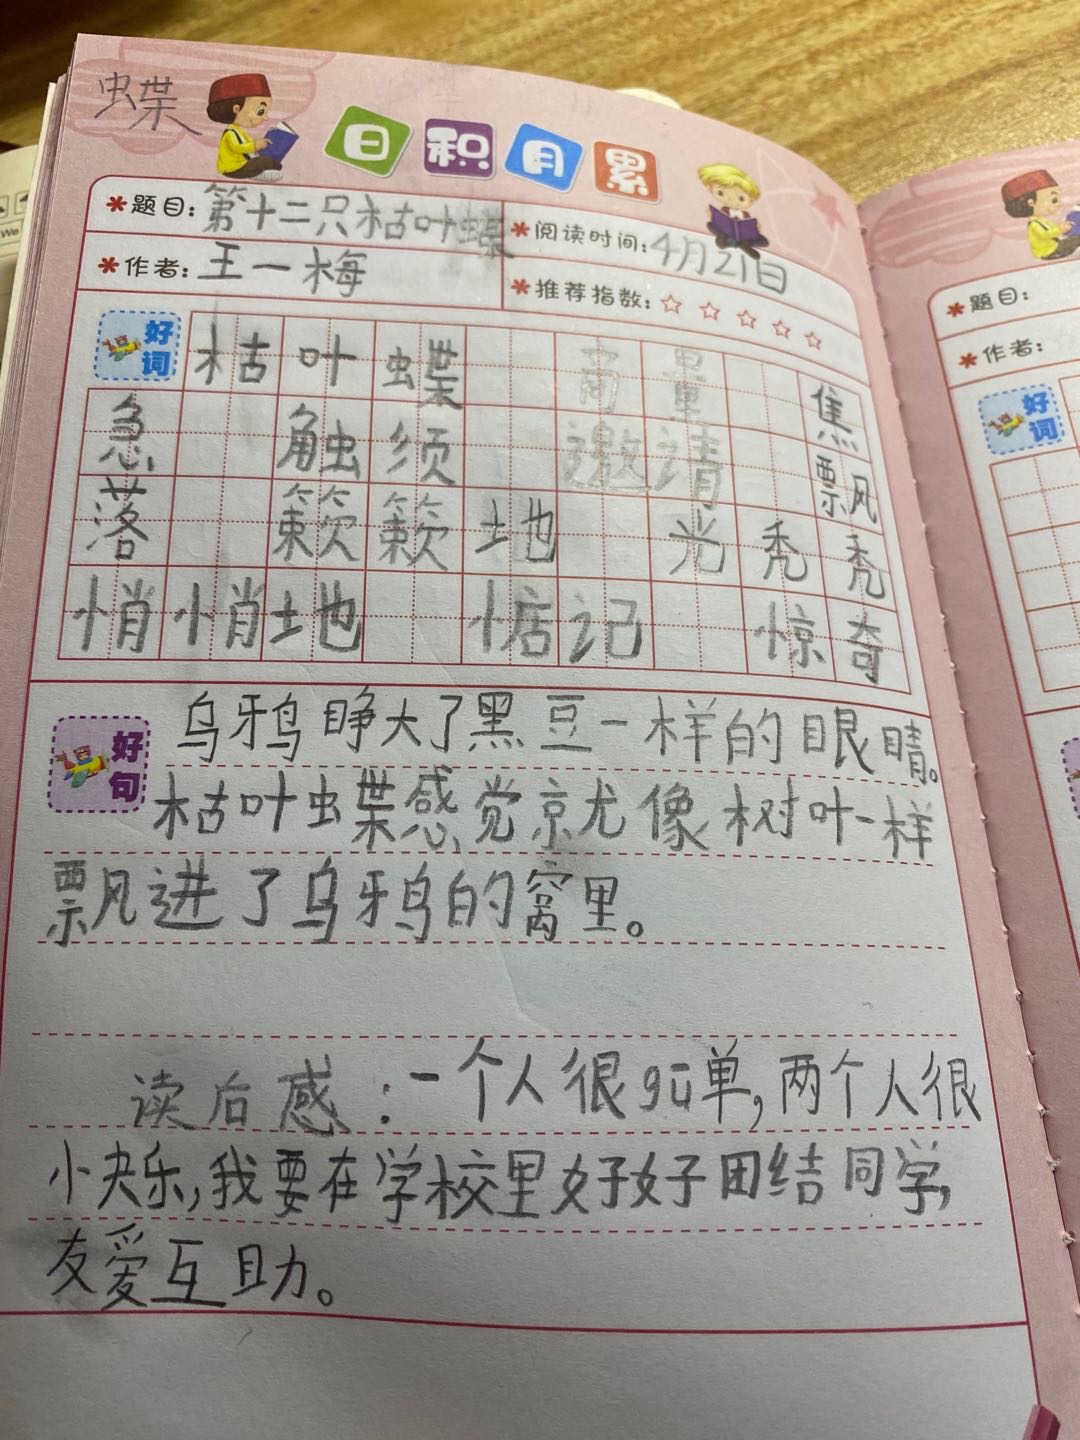 蝶
日积月累
题目：第十二只枯叶蝶
阅读时间：4月21日
作者：王一梅
推荐指数：☆☆☆☆☆
好词
枯叶蝶 商量 焦
急 触须 邀请 飘
落 簌簌地 光秃秃
悄悄地 惦记 惊奇
好句
乌鸦睁大了黑豆一样的眼睛。
枯叶蝶感觉就像树叶一样
飘进了乌鸦的窝里。
读后感：一个人很gū单，两个人很
小快乐，我要在学校里好好团结同学，
友爱互助。
题目：
作者：
好词